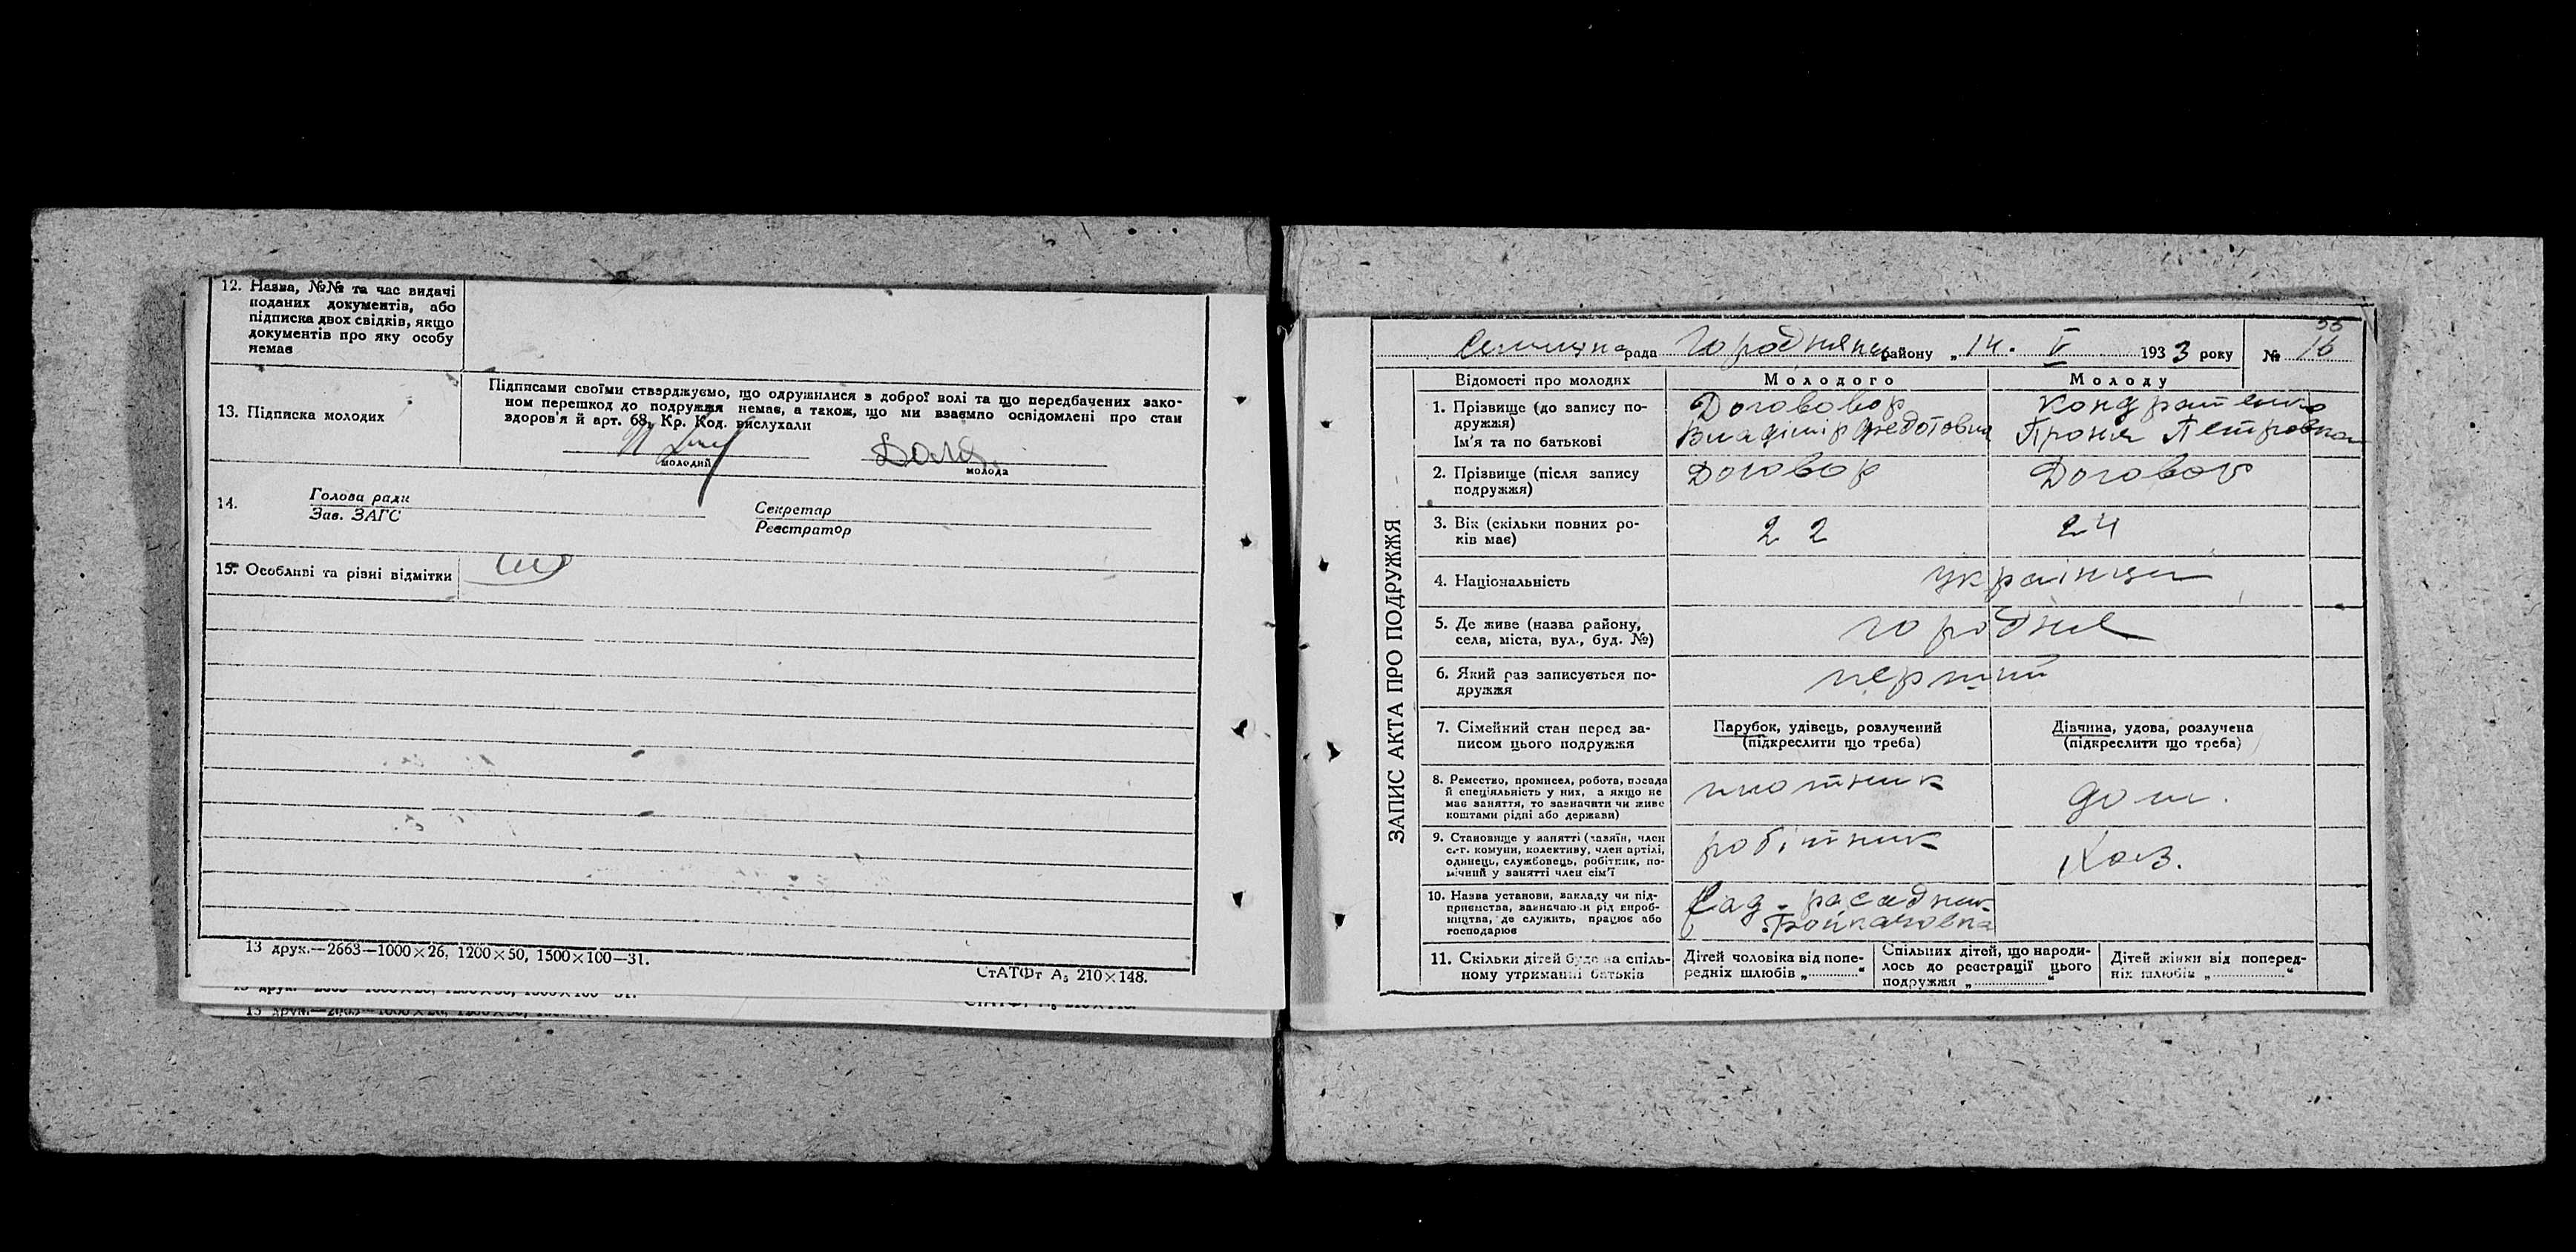 12. Назва, №№ та час видачі
поданих документів, або
підписка двох свідків, якщо
документів про яку особу
немає
13. Підписка молодих
Підписами своїми стверджуємо, що одружилися з доброї волі та що передбачених зако-
ном перешкод до подружжя немає, а також, що ми взаємно освідомлені про стан
здоров'я й арт. 68, Кр. Код. вислухали
молодий
молода
14.
Голова ради
Зав. ЗАГС
Секретар
Реєстратор
15. Особливі та різні відмітки
13 друк.—2663—1000×26, 1200×50, 1500×100—31.
СтАТФт А₅ 210×148.
ЗАПИС АКТА ПРО ПОДРУЖЖЯ
рада
району „14. V 1933 року
№ 16
55
Відомості про молодих
Молодого
Молоду
1. Прізвище (до запису по-
дружжя)
Ім'я та по батькові
Договор
Владімір Федотович
Кондратенко
Проня Петровна
2. Прізвище (після запису
подружжя)
Договор
Договор
3. Вік (скільки повних ро-
ків має)
22
24
4. Національність
українци
5. Де живе (назва району,
села, міста, вул., буд. №)
Городня
6. Який раз записується по-
дружжя
перший
7. Сімейний стан перед за-
писом цього подружжя
Парубок, удівець, розлучений
(підкреслити що треба)
Дівчина, удова, розлучена
(підкреслити що треба)
8. Ремество, промисел, робота, посада
й спеціяльність у них, а якщо не
має заняття, то зазначити чи живе
коштами рідні або держави)
плотник
дом.
9. Становище у занятті (хазяїн, член
с.-г. комуни, колективу, член артілі,
одинець, службовець, робітник, по-
мічний у занятті член сім'ї
робітник
Хоз.
10. Назва установи, закладу чи під-
приємства, зазначаючи рід вироб-
ництва, де служить, працює або
господарює
Сад-расадник
11. Скільки дітей буде на спіль-
ному утриманні батьків
Дітей чоловіка від попе-
редніх шлюбів „..........“
Спільних дітей, що народи-
лось до реєстрації цього
подружжя „..........“
Дітей жінки від поперед-
ніх шлюбів „..........“